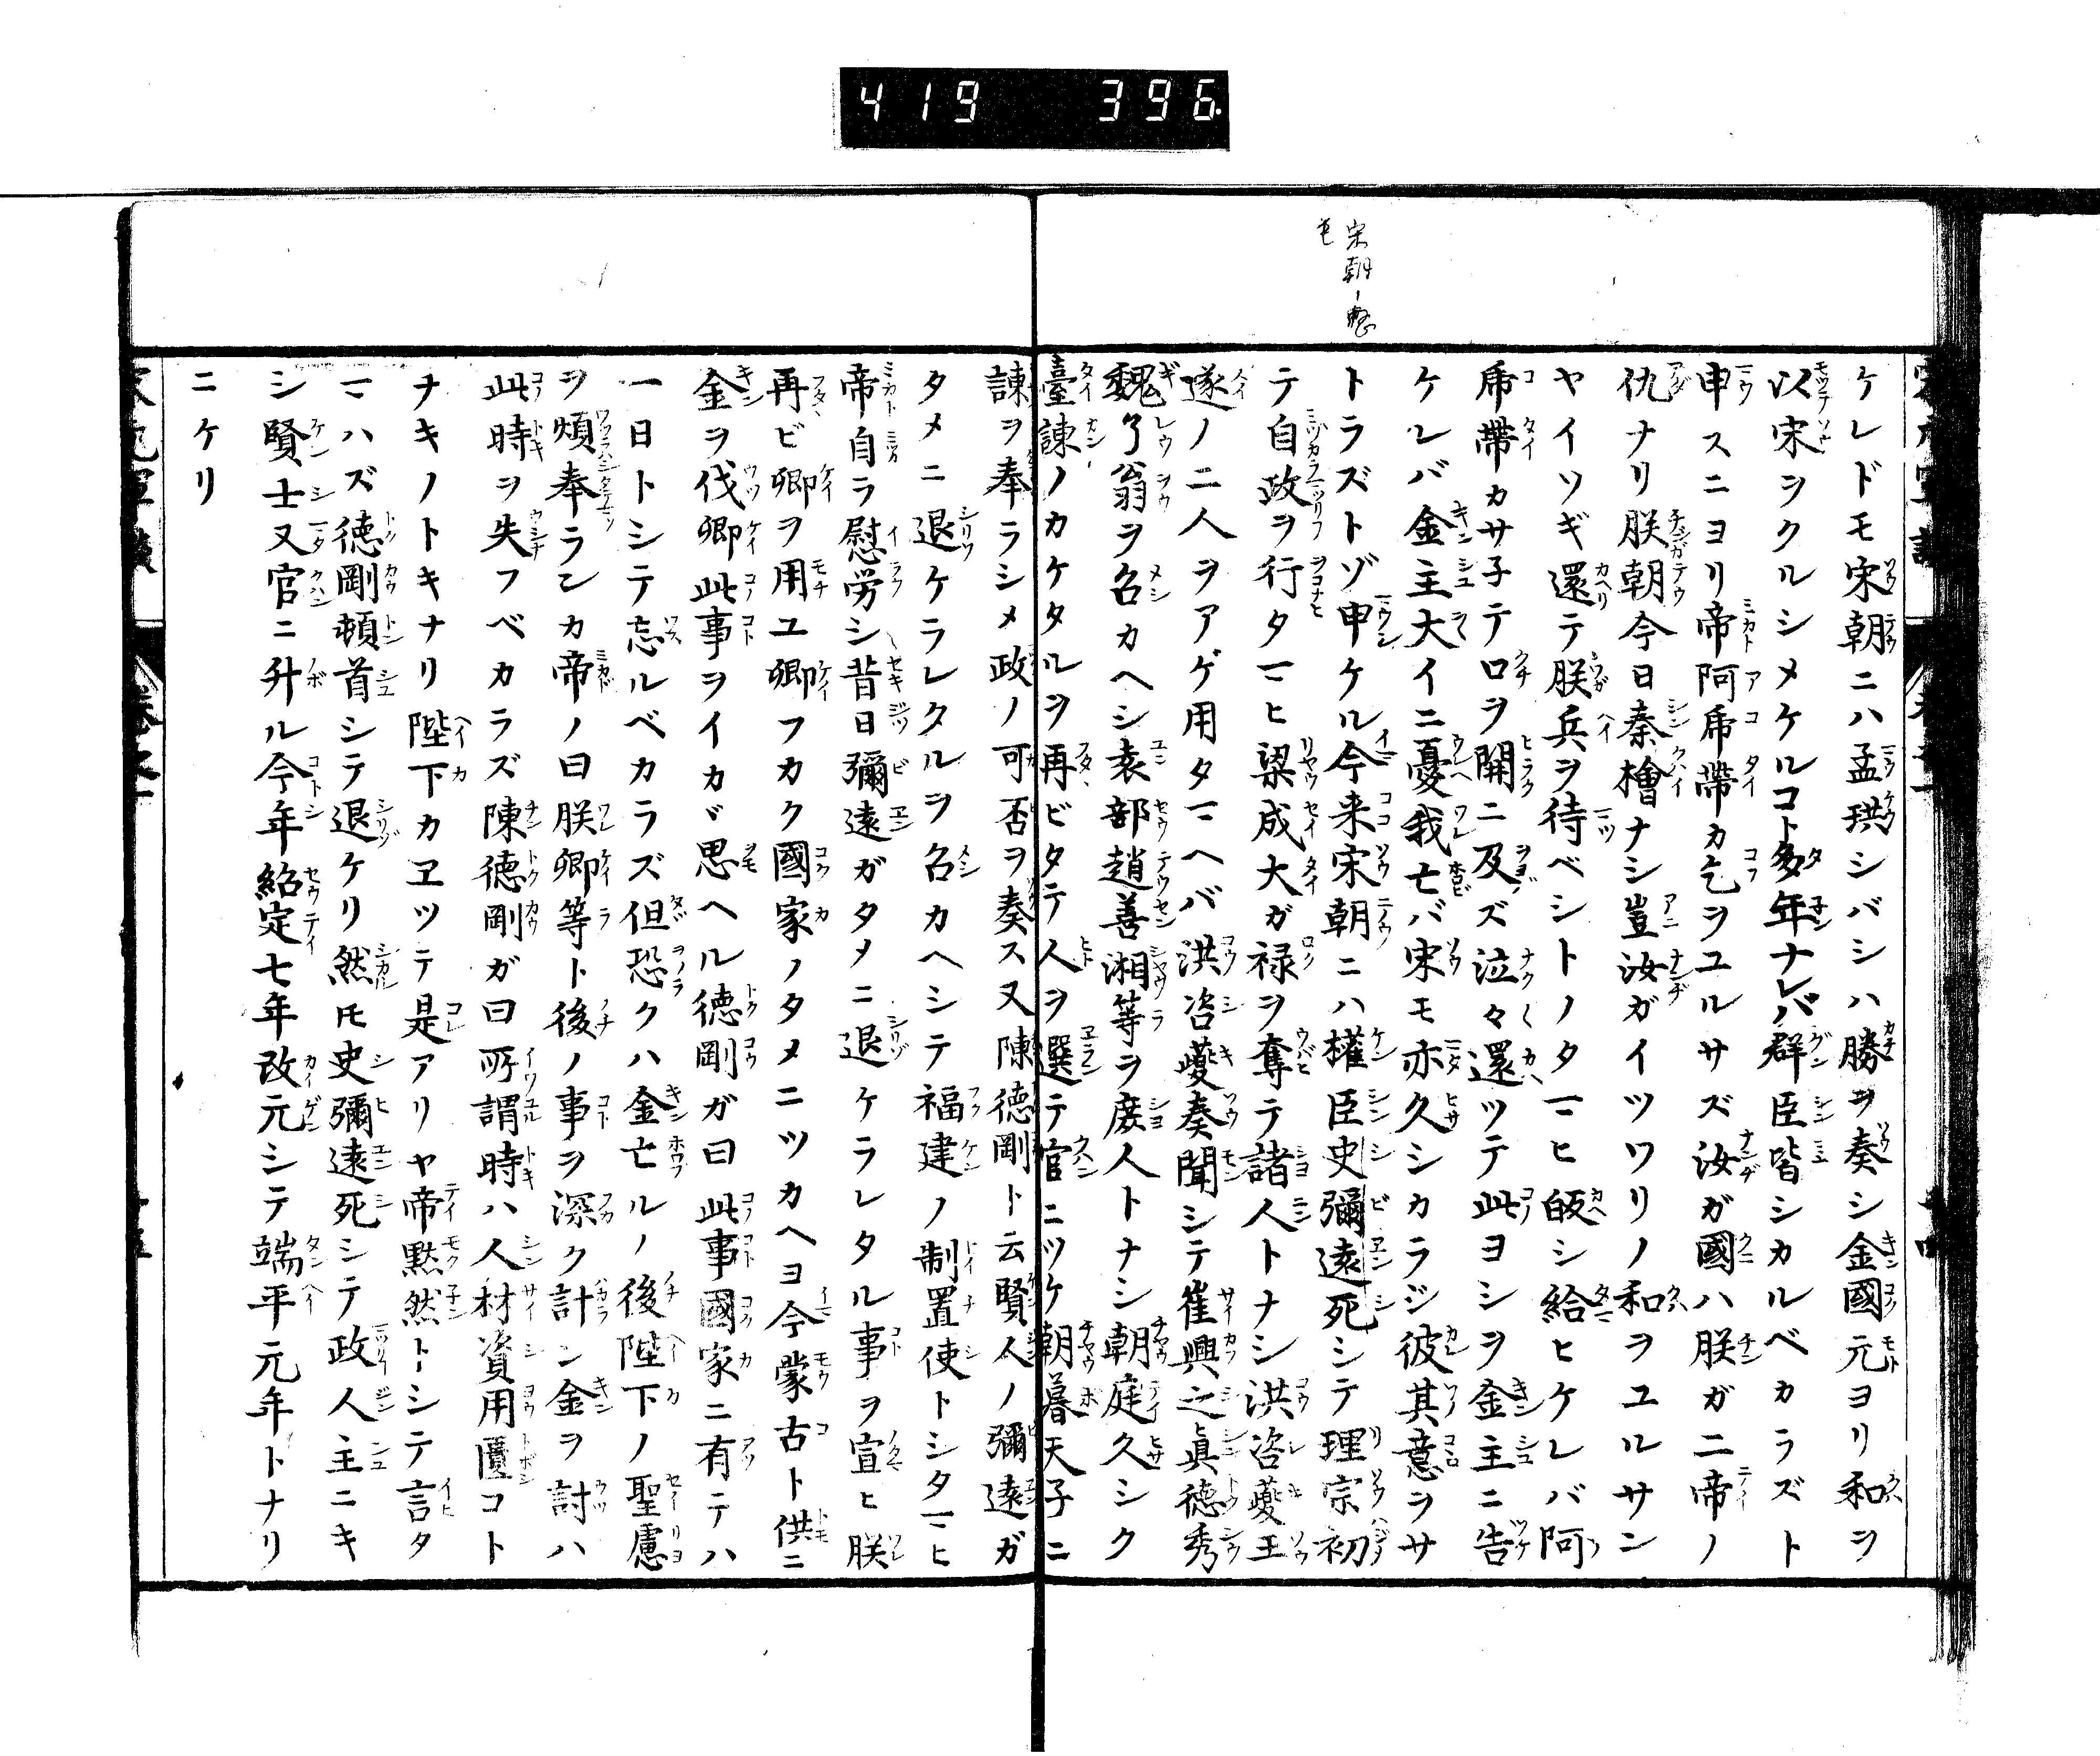 419 396
宋朝ノ
ケレドモ宋朝ニハ孟珙シバシハ勝ヲ奏シ金國元ヨリ和ヲ
以宋ヲクルシメケルコト多年ナレバ群臣皆シカルベカラズト
申スニヨリ帝阿帍帶カ乞ヲユルサズ汝ガ國ハ朕ガ二帝ノ
仇ナリ朕朝今日秦檜ナシ豈汝ガイツワリノ和ヲユルサン
ヤイソギ還テ朕兵ヲ待ベシトノタマヒ皈シ給ヒケレバ阿
帍帶カサ子テロヲ開ニ及ズ泣々還ツテ此ヨシヲ金主ニ告
ケレバ金主大イニ憂我亡バ宋モ亦久シカラジ彼其意ヲサ
トラズトゾ申ケル今来宋朝ニハ權臣史彌遠死シテ理宗初
テ自政ヲ行タマヒ梁成大ガ禄ヲ奪テ諸人トナシ洪咨夔王
遂ノ二人ヲアゲ用タマヘバ洪咨夔奏聞シテ崔與之眞德秀
魏了翁ヲ名カヘシ袁部趙善湘等ヲ庶人トナシ朝庭久シク
臺諫ノカケタルヲ再ビタテ人ヲ選テ官ニツケ朝暮天子ニ
諫ヲ奉ラシメ政ノ可否ヲ奏ス又陳德剛ト云賢人ノ彌遠ガ
タメニ退ケラレタルヲ名カヘシテ福建ノ制置使トシタマヒ
帝自ラ慰労シ昔日彌遠ガタメニ退ケラレタル事ヲ宣ヒ朕
再ビ卿ヲ用ユ卿フカク國家ノタメニツカヘヨ今蒙古ト供ニ
金ヲ伐卿此事ヲイカヾ思ヘル德剛ガ曰此事國家ニ有テハ
一日トシテ忘ルベカラズ但恐クハ金亡ルノ後陛下ノ聖慮
ヲ煩奉ランカ帝ノ曰朕卿等ト後ノ事ヲ深ク計ン金ヲ討ハ
此時ヲ失フベカラズ陳德剛ガ曰所謂時ハ人材資用匱コト
ナキノトキナリ陛下カヱツテ是アリヤ帝黙然トシテ言タ
マハズ德剛頓首シテ退ケリ然ㇹ史彌遠死シテ政人主ニキ
シ賢士又官ニ升ル今年紹定七年改元シテ端平元年トナリ
ニケリ